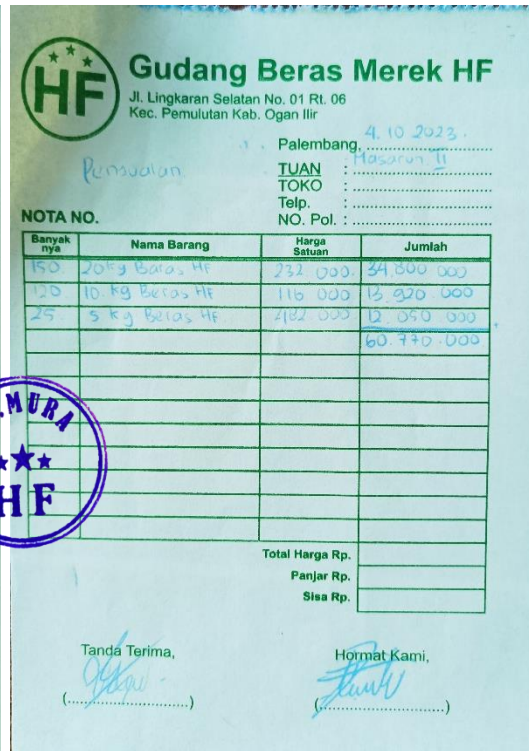 HF
Gudang Beras Merek HF
Jl. Lingkaran Selatan No. 01 Rt. 06
Kec. Pemulutan Kab. Ogan Ilir
Palembang, 4.10 2023.
Penjualan
TUAN : Masarun II
TOKO :
Telp. :
NO. Pol. :
NOTA NO.
Banyak nya Nama Barang Harga Satuan Jumlah
150. 20 kg Beras HF 232 000. 34.800 000
120 10. kg Beras HF 116 000 13 920 000
25 5 kg Beras HF 000 12 050 000
60.770.000
MURA
HF
Total Harga Rp.
Panjar Rp.
Sisa Rp.
Tanda Terima, Hormat Kami,
(....................) (....................)